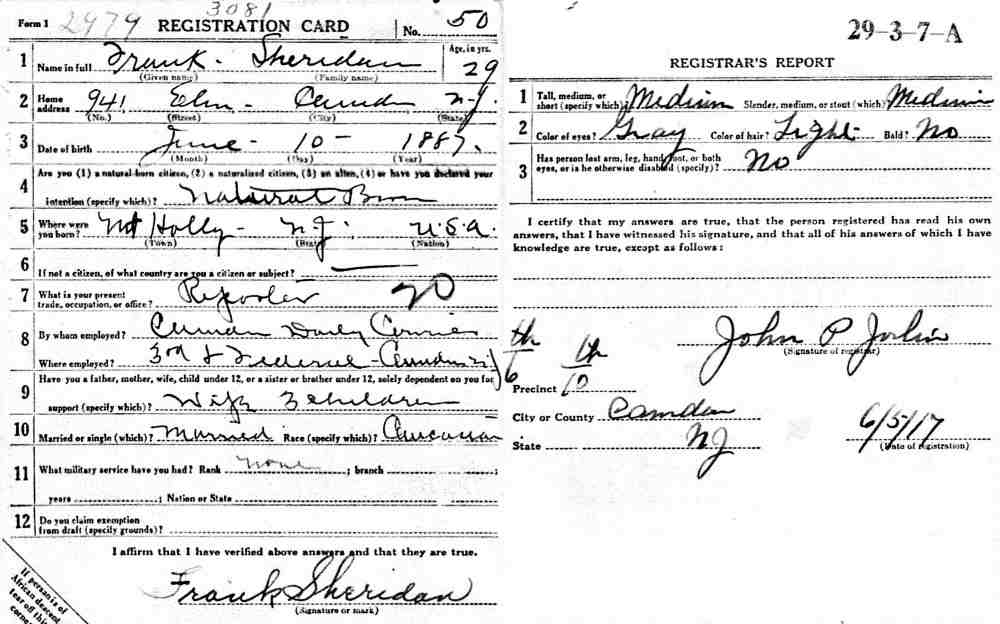 3081
Form 1 2979 REGISTRATION CARD No. 50
1 Name in full Frank Sheridan Age, in yrs. 29
(Given name) (Family name)
2 Home address 941 Elm Camden N.J.
(No.) (Street) (City) (State)
3 Date of birth June 10 1887
(Month) (Day) (Year)
Are you (1) a natural-born citizen, (2) a naturalized citizen, (3) an alien, (4) or have you declared your
4 intention (specify which)? Natural Born
5 Where were you born? Mt Holly N.J. U.S.A.
(Town) (State) (Nation)
6 If not a citizen, of what country are you a citizen or subject?
7 What is your present trade, occupation, or office? Reporter 20
8 By whom employed? Camden Daily Courier
Where employed? 3rd & Federal - Camden N.J.
9 Have you a father, mother, wife, child under 12, or a sister or brother under 12, solely dependent on you for
support (specify which)? Wife 3 children
10 Married or single (which)? Married Race (specify which)? Caucasian
11 What military service have you had? Rank none ; branch ;
years ; Nation or State
12 Do you claim exemption from draft (specify grounds)?
I affirm that I have verified above answers and that they are true.
Frank Sheridan
(Signature or mark)
If person is of
African descent
tear off this
corner
29-3-7-A
REGISTRAR'S REPORT
1 Tall, medium, or short (specify which)? Medium Slender, medium, or stout (which) Medium
2 Color of eyes? Gray Color of hair? Light Bald? No
3 Has person lost arm, leg, hand, foot, or both eyes, or is he otherwise disabled (specify)? No
I certify that my answers are true, that the person registered has read his own
answers, that I have witnessed his signature, and that all of his answers of which I have
knowledge are true, except as follows:
John P
(Signature of registrar)
Precinct 6th 10th
City or County Camden 6/5/17
State NJ (Date of registration)